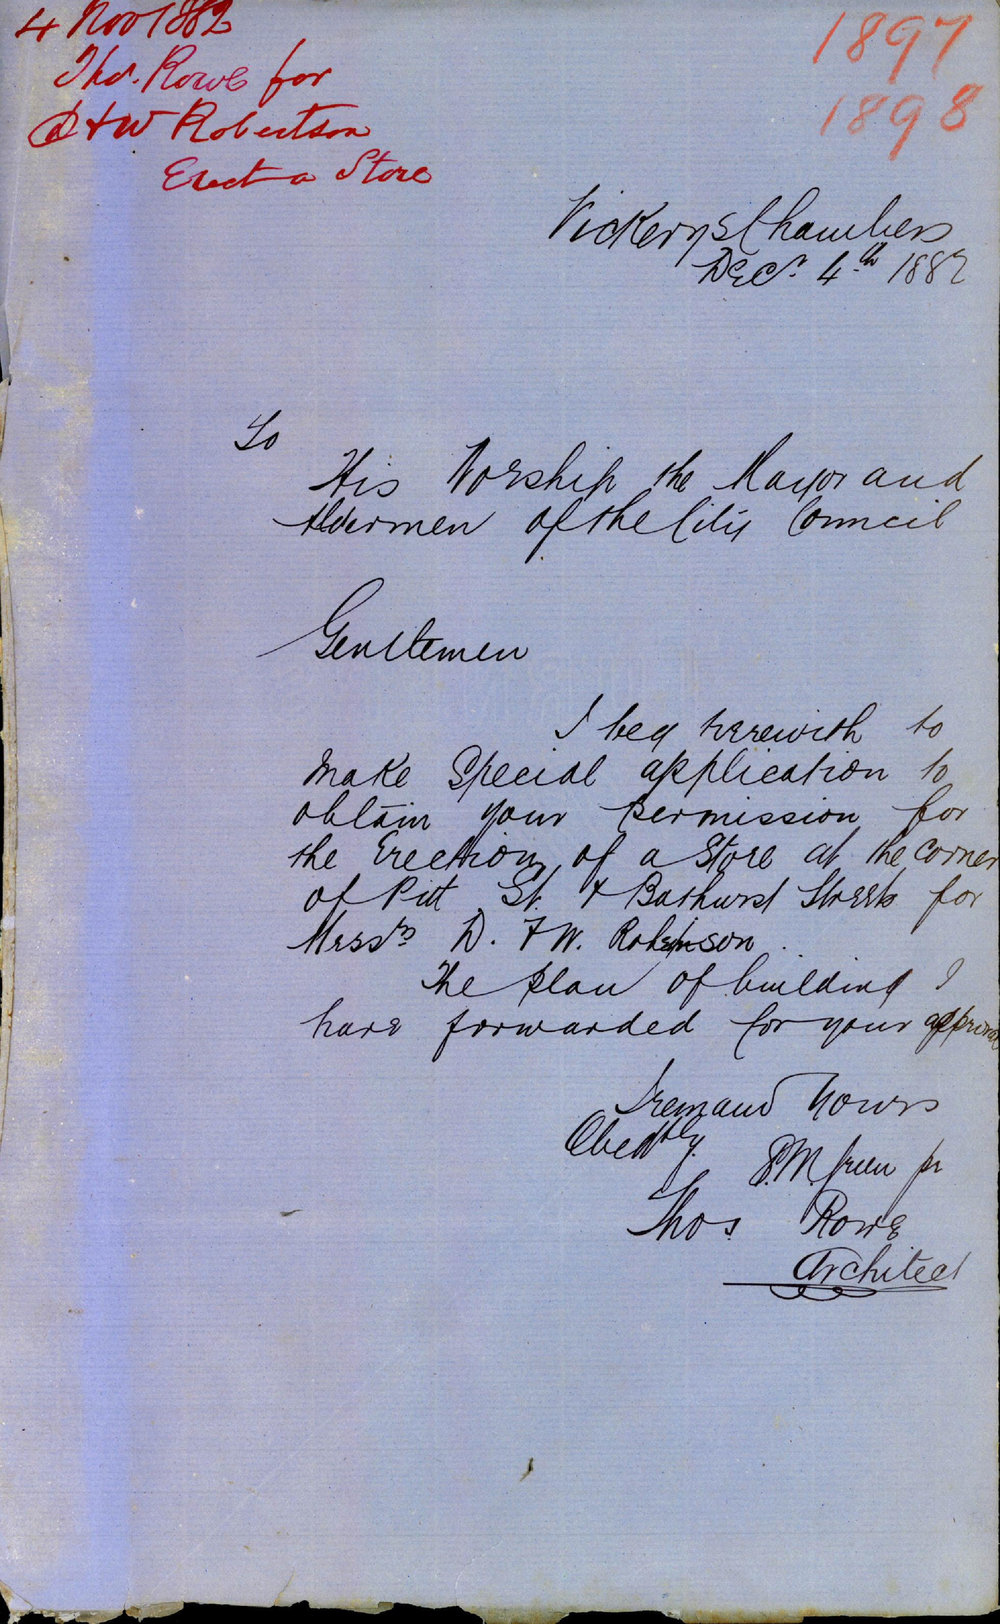 4 Nov 1882
Thos. Rowe for
D & W Robertson
Erect a Store
1897
1898
Vickerys Chambers
Decr. 4th 1882
To
His Worship the Mayor and
Aldermen of the City Council
Gentlemen
I beg herewith to
make Special application to
obtain your permission for
the Erection of a Store at the corner
of Pitt St. & Bathurst Streets for
Messrs D. & W. Robertson.
The plan of building I
have forwarded for your approval
I remain Yours
Obedtly.
S.M. Green pr
Thos. Rowe
Architect